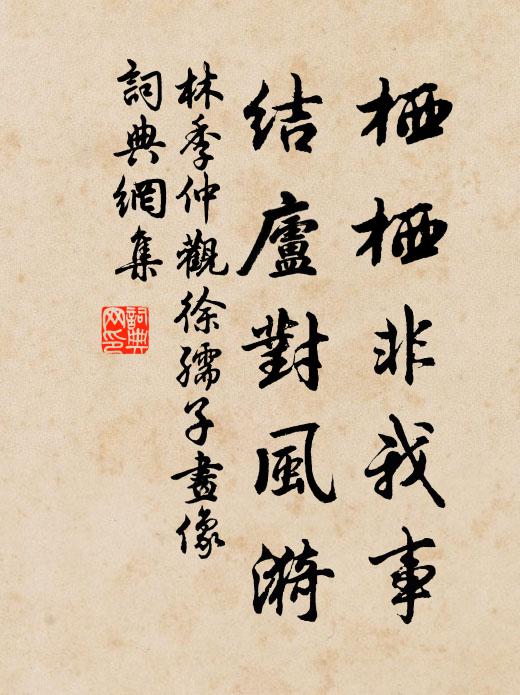 栖栖非我事
結廬對風漪
林季仲觀徐孺子畫像
詞典網集
詞典网印